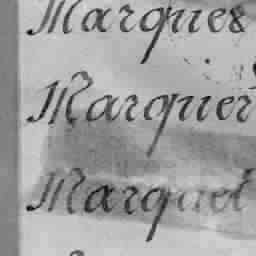 Marques
Marquer
Marquet